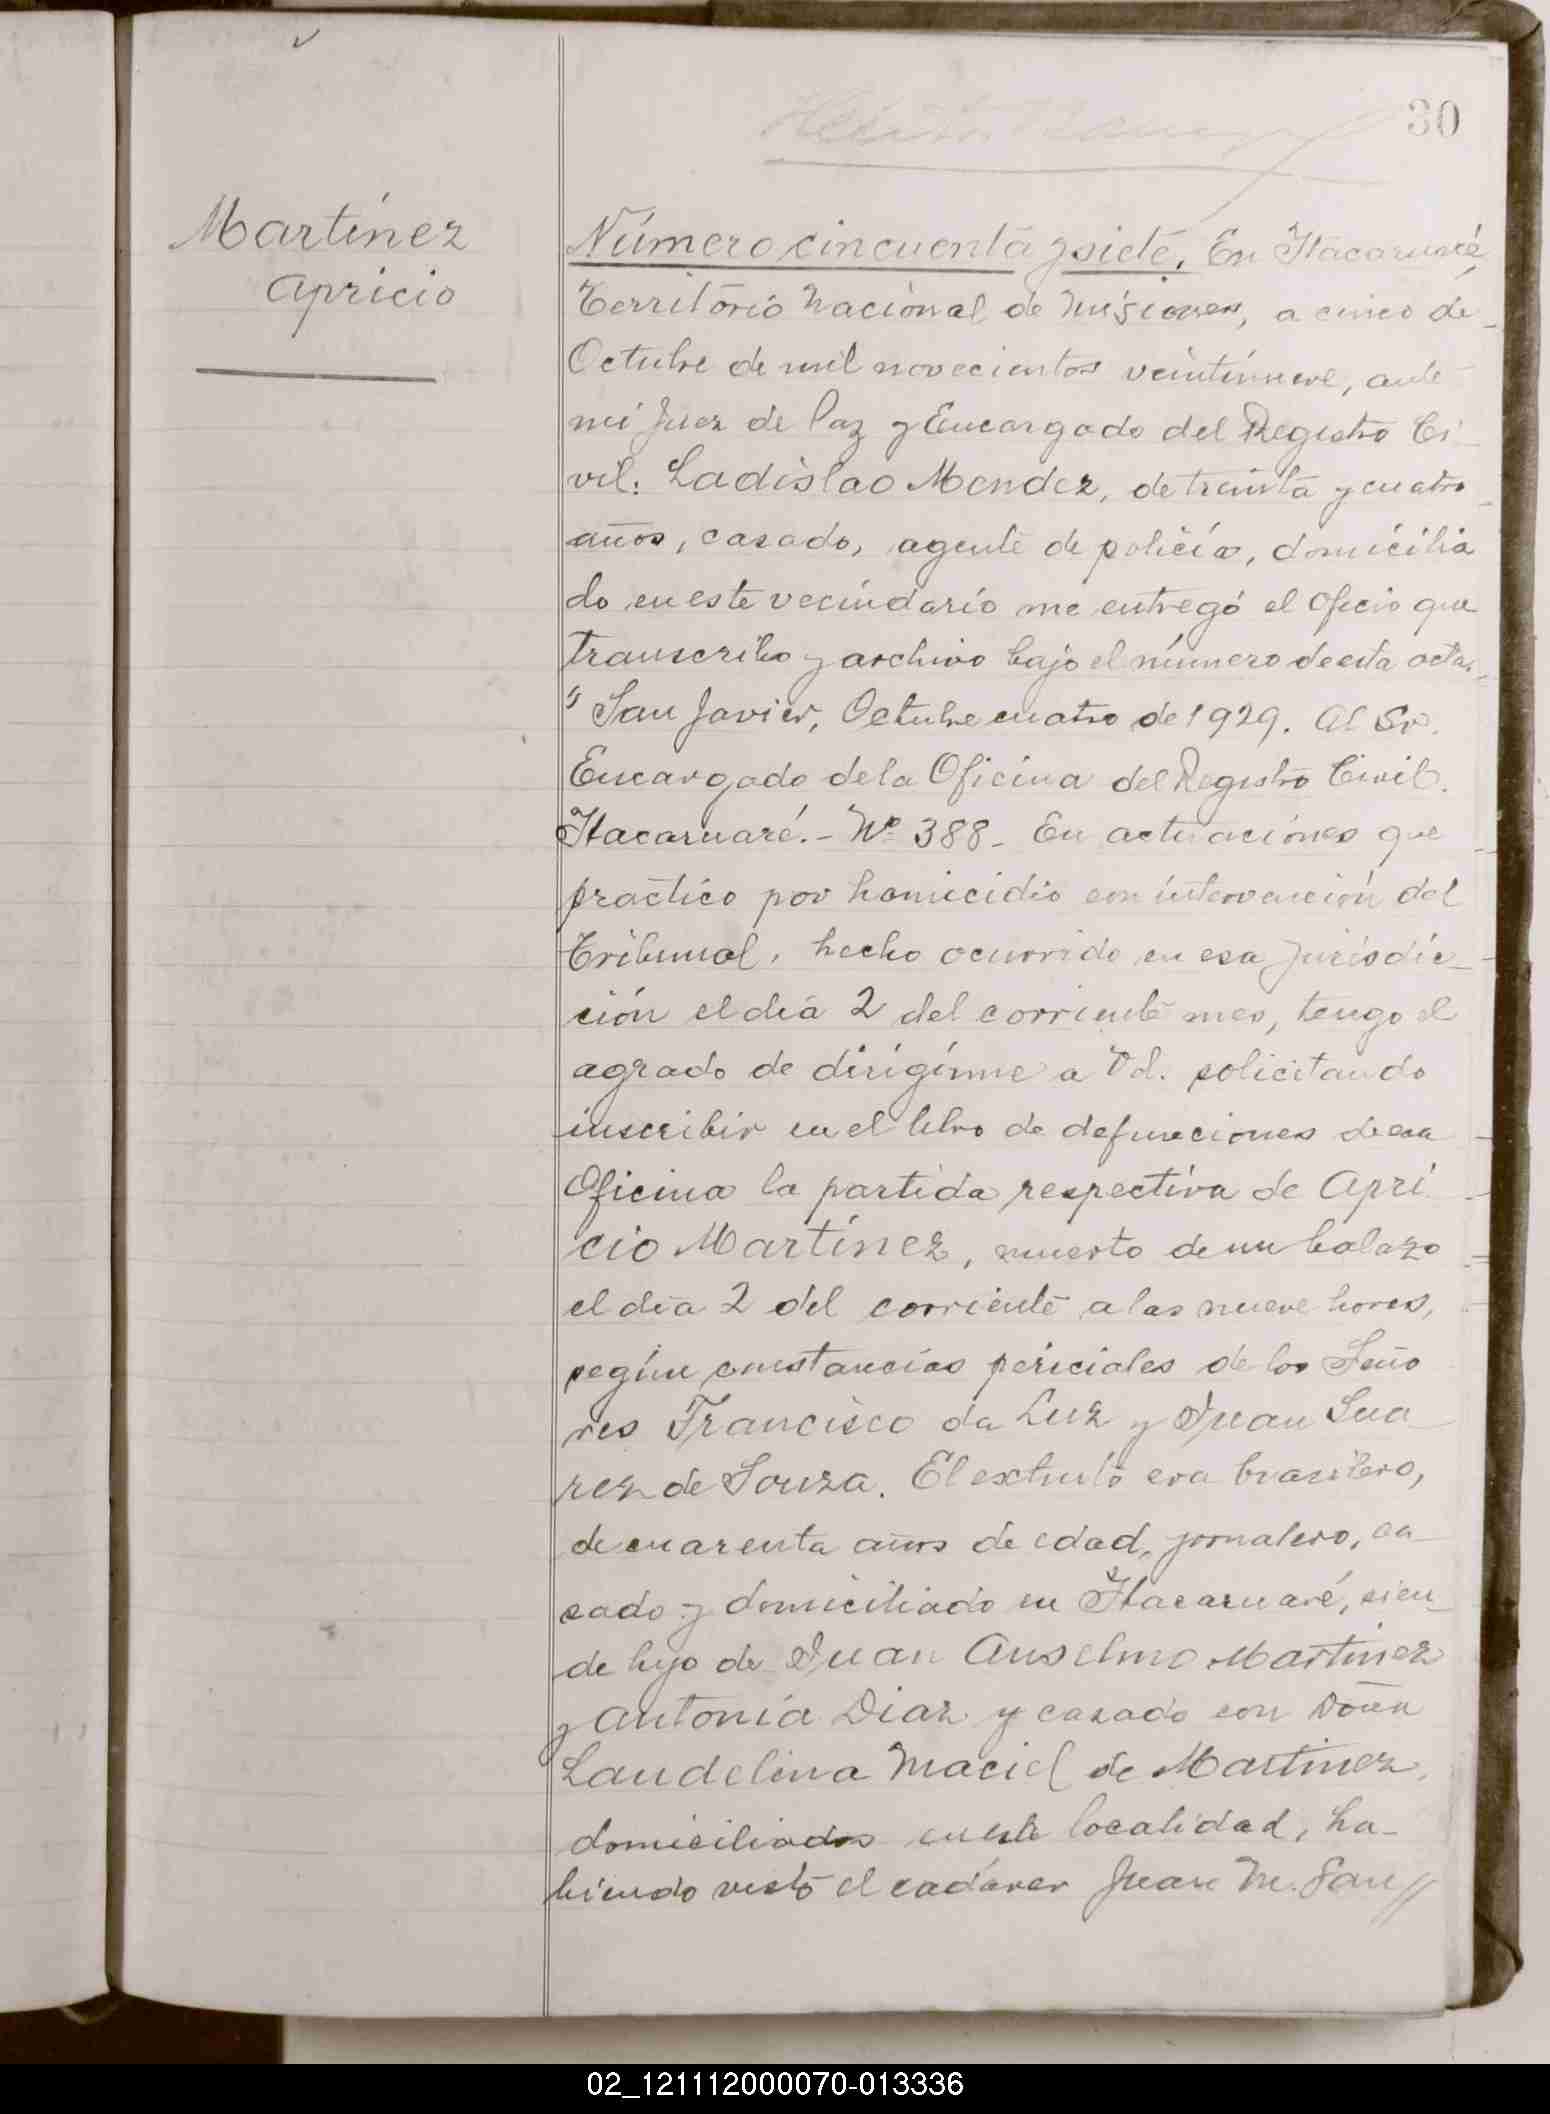 30
Martínez
Apricio
Número cincuenta y siete. En Itacaruaré,
Territorio Nacional de Misiones, a cinco de
Octubre de mil novecientos veintinueve, ante
mi Juez de Paz y Encargado del Registro Ci-
vil: Ladislao Mendez, de treinta y cuatro
años, casado, agente de policía, domicilia
do en este vecindario me entregó el oficio que
transcribo y archivo bajo el número de esta acta.
"San Javier, Octubre cuatro de 1929. Al Sr.
Encargado de la Oficina del Registro Civil.
Itacaruaré.- Nº 388- En actuaciónes que
practico por homicidio con intervención del
Tribunal, hecho ocurrido en esa jurisdic-
ción el día 2 del corriente mes, tengo el
agrado de dirigírme a Vd. solicitando
inscribir en el libro de defunciones de esa
Oficina la partida respectiva de Apri
cio Martínez, muerto de un balazo
el día 2 del corriente a las nueve horas,
según constancias periciales de los Seño
res Francisco da Luz y Juan Sua
rez de Souza. El extinto era brasilero,
de cuarenta años de edad, jornalero, ca-
sado y domiciliado en Itacaruaré, sien-
do hijo de Juan Anselmo Martinez
y Antonia Diaz y casado con Doña
Laudelina Maciel de Martinez,
domiciliados en esta localidad, ha-
biendo visto el cadáver Juan M. San//
02_121112000070-013336